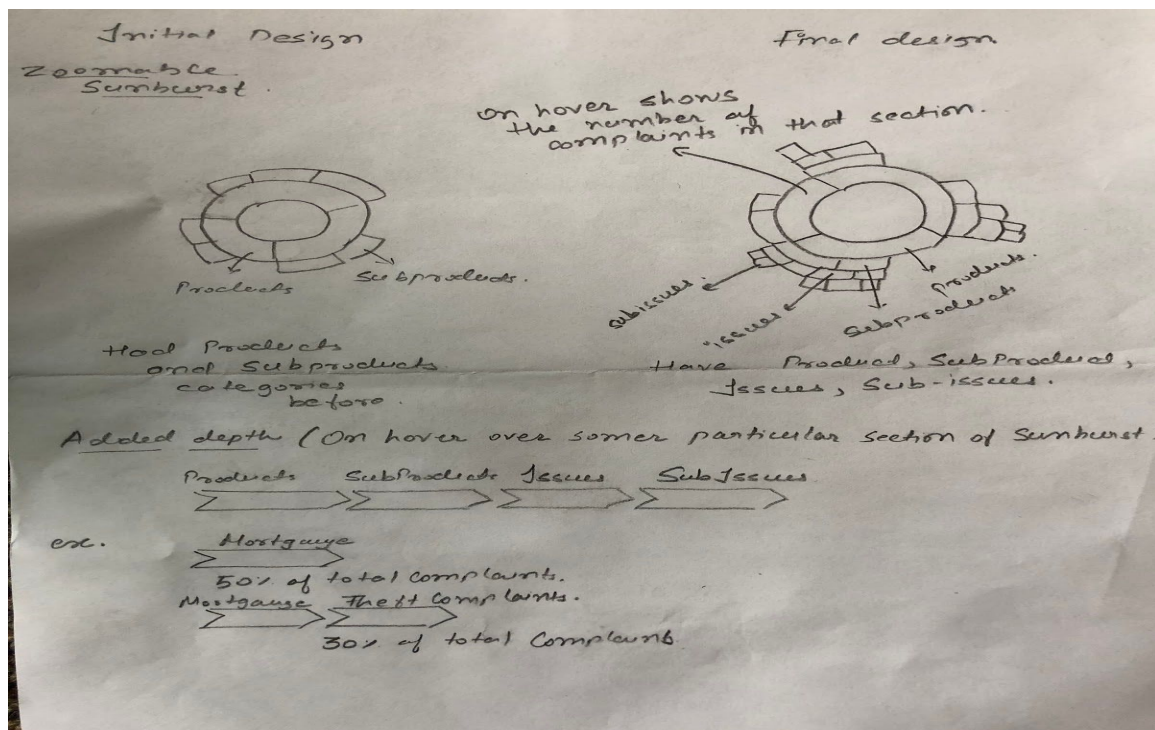 Initial Design
Final design
Zoomable
Sunburst.
on hover shows
the number of
complaints in that section.
Products
Subproducts.
subissues.
"issues
Subproducts
products.
Had Products
and Subproducts
categories
before.
Have Product, SubProduct,
Issues, Sub-issues.
Added depth (On hover over somer particular section of Sunburst.
Products SubProducts Issues SubIssues
ex.
Mortgauge
50% of total complaints.
Mortgauge Theft Complaints.
30% of total Complaints